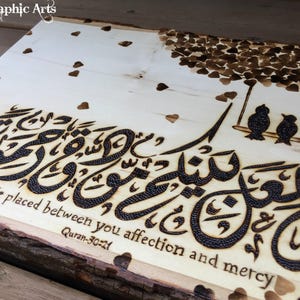 aphic Arts
جعل بينكم مودة ورحمة
placed between you affection and mercy
Quran-30:21